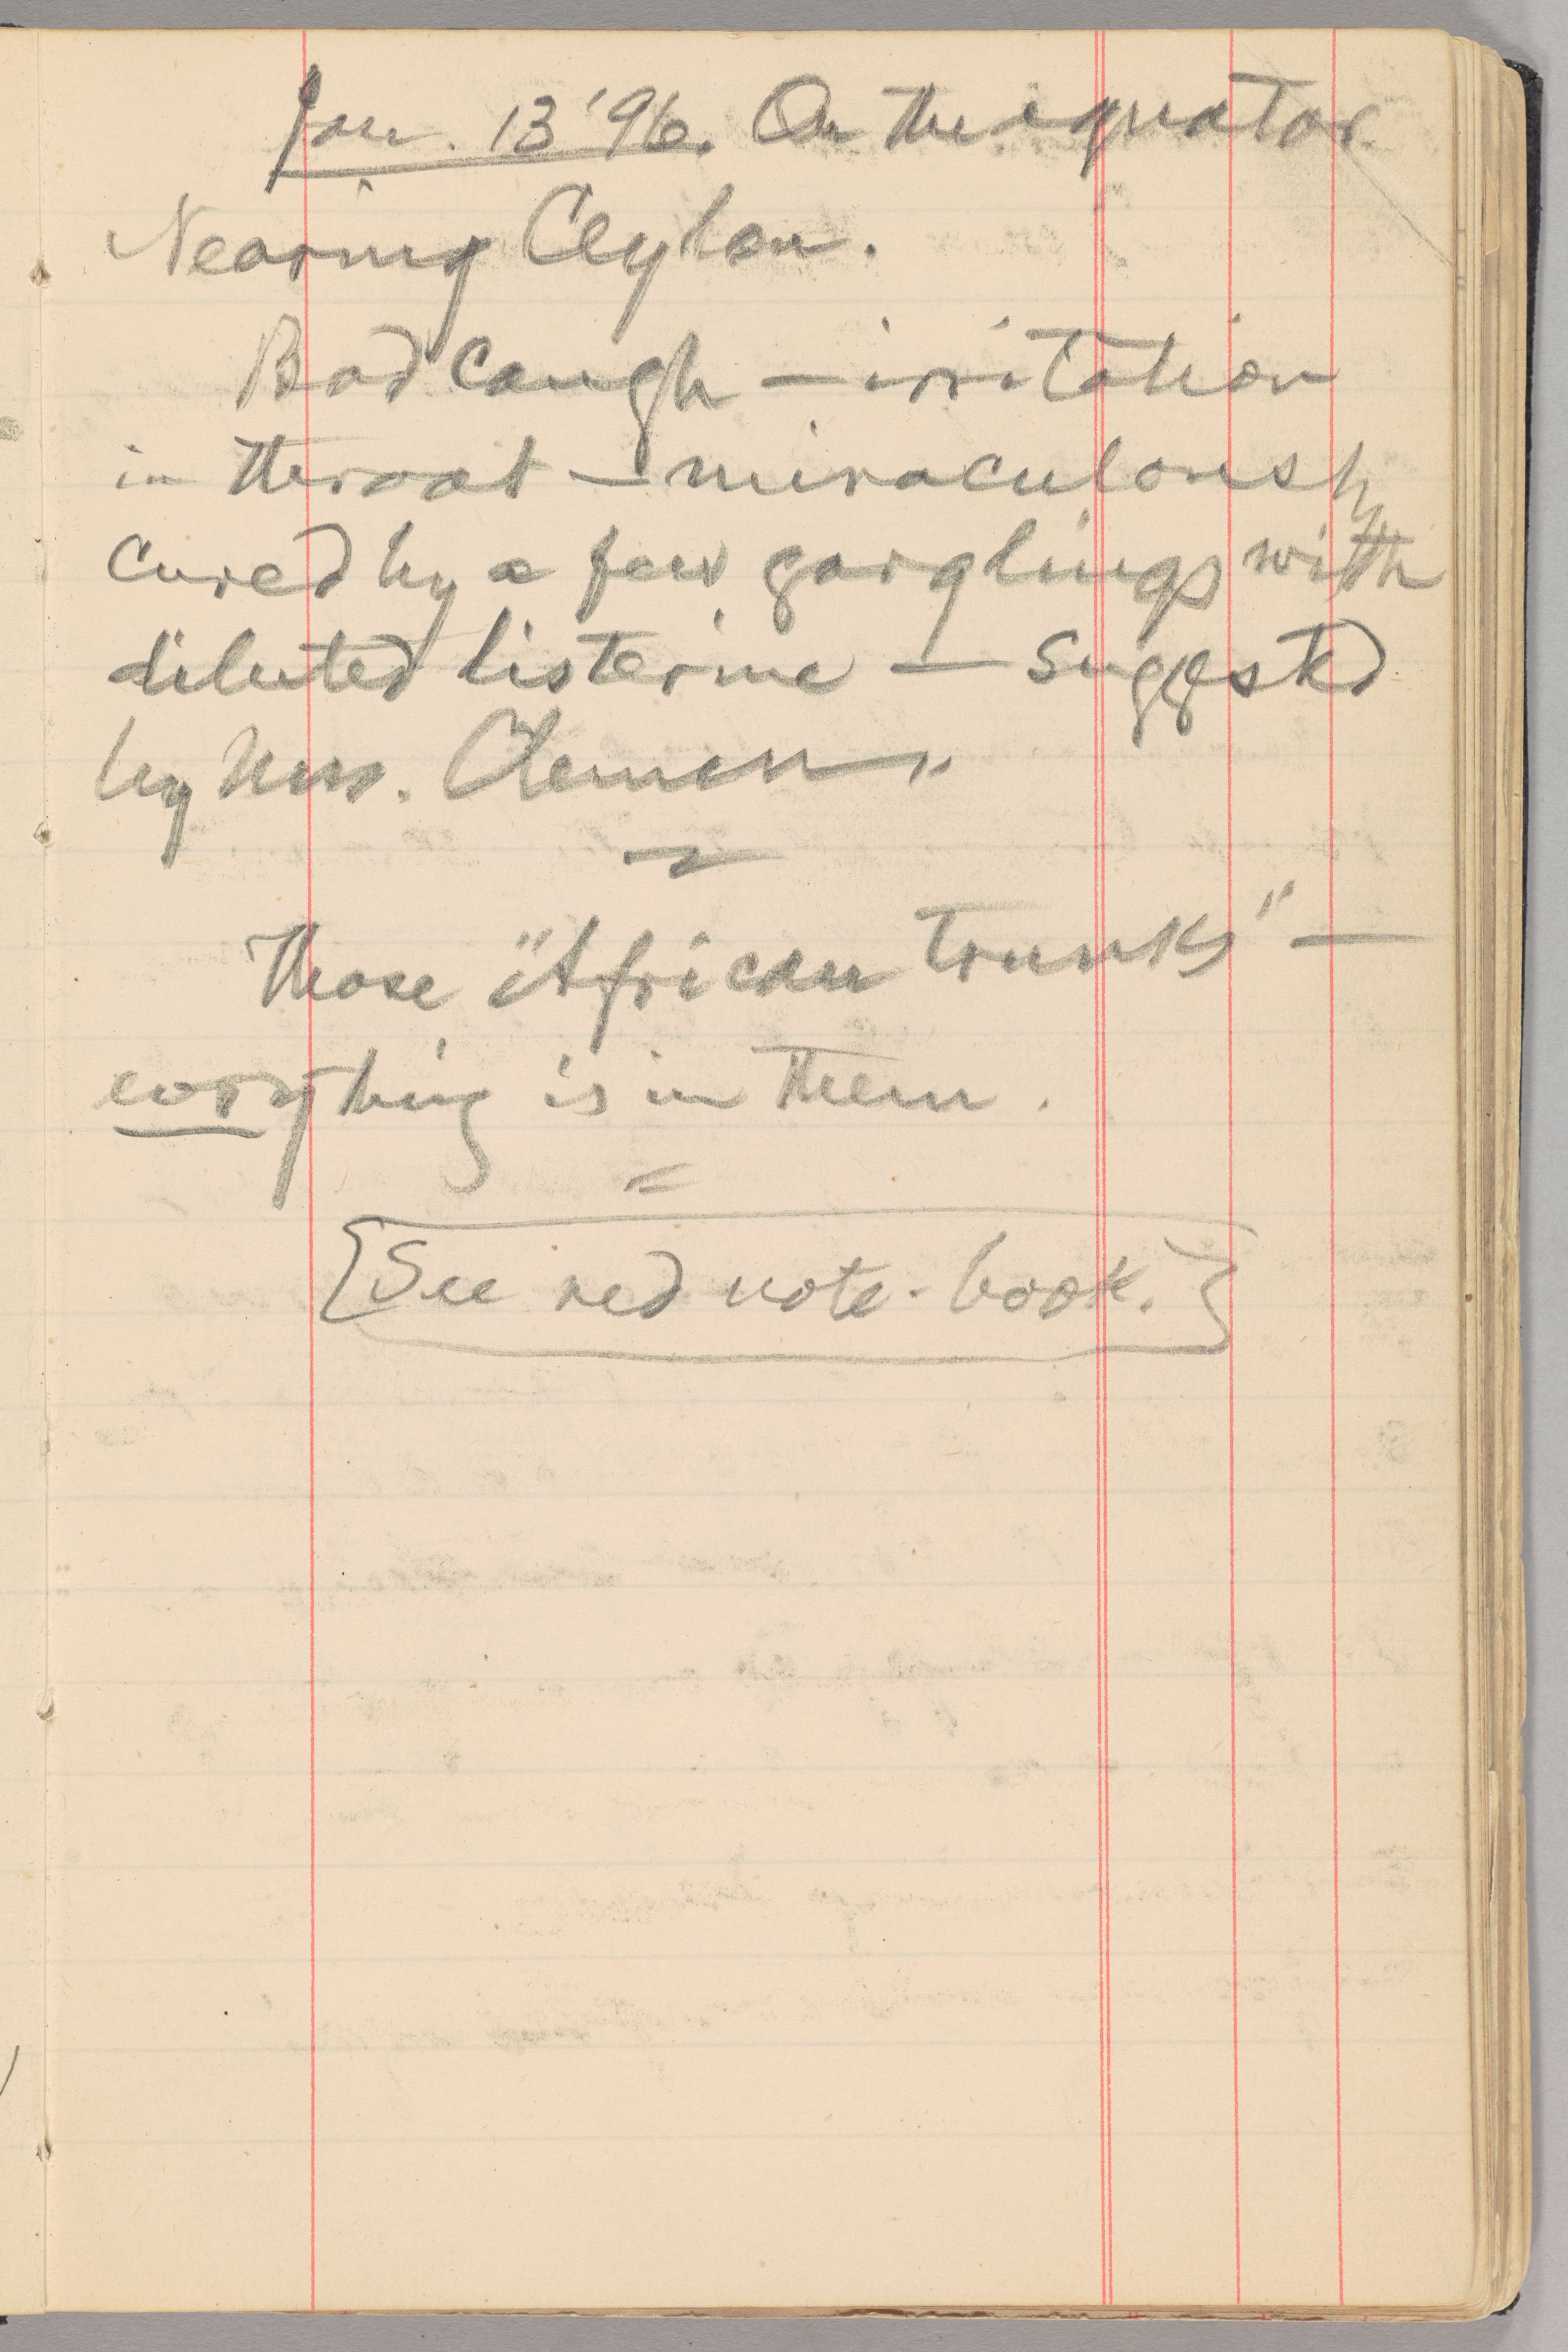 Jan. 13 '96. On the equator.
Nearing Ceylon.
Bad cough — irritation
in throat — miraculously
cured by a few garglings with
diluted listerine — suggested
by Mrs. Clemens.
Those "African trunks" —
everything is in them.
[See red note-book.]